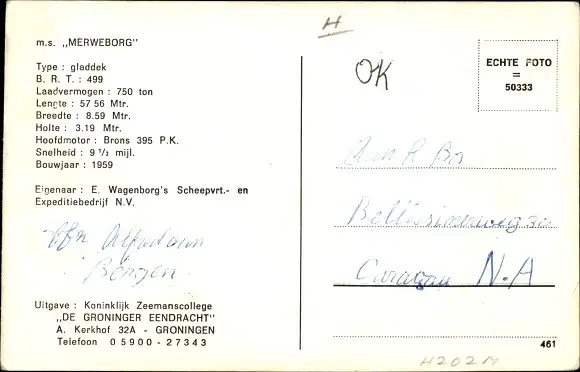 H
m.s. „MERWEBORG"
OK
ECHTE FOTO
=
50333
Type : gladdek
B. R. T. : 499
Laadvermogen : 750 ton
Lengte : 57 56 Mtr.
Breedte : 8.59 Mtr.
Holte : 3.19 Mtr.
Hoofdmotor : Brons 395 P.K.
Snelheid : 9 1/2 mijl.
Bouwjaar : 1959
Eigenaar : E. Wagenborg's Scheepvrt.- en
Expeditiebedrijf N.V.
Bergen
Curaçau N.A
Uitgave : Koninklijk Zeemanscollege
„DE GRONINGER EENDRACHT"
A. Kerkhof 32A - GRONINGEN
Telefoon 05900-27343
461
H202M